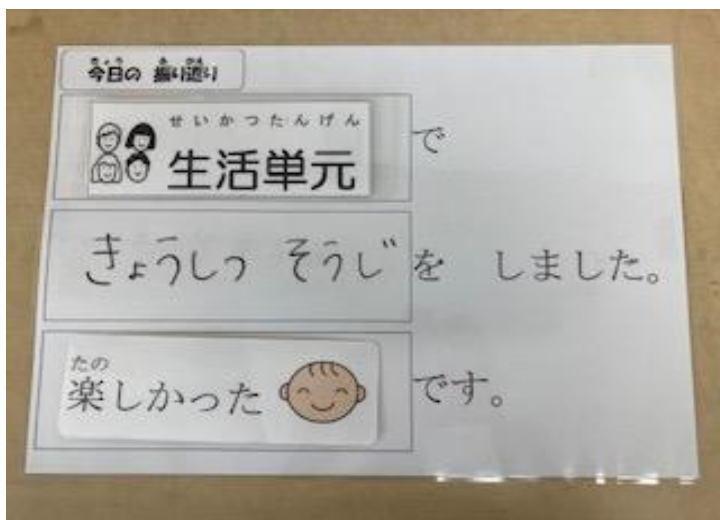 きょう ふ かえ
今日の 振り返り
せいかつたんげん
生活単元 で
きょうしつ そうじ を しました。
たの
楽しかった です。